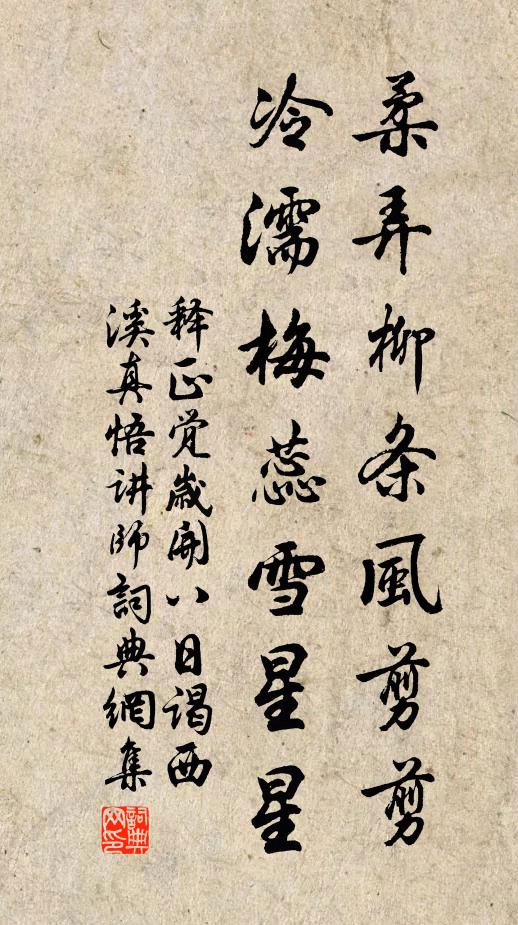 柔弄柳条風剪剪
冷濡梅蕊雪星星
释正觉歲開八日谒西
溪真悟讲師詞典網集
詞典网印